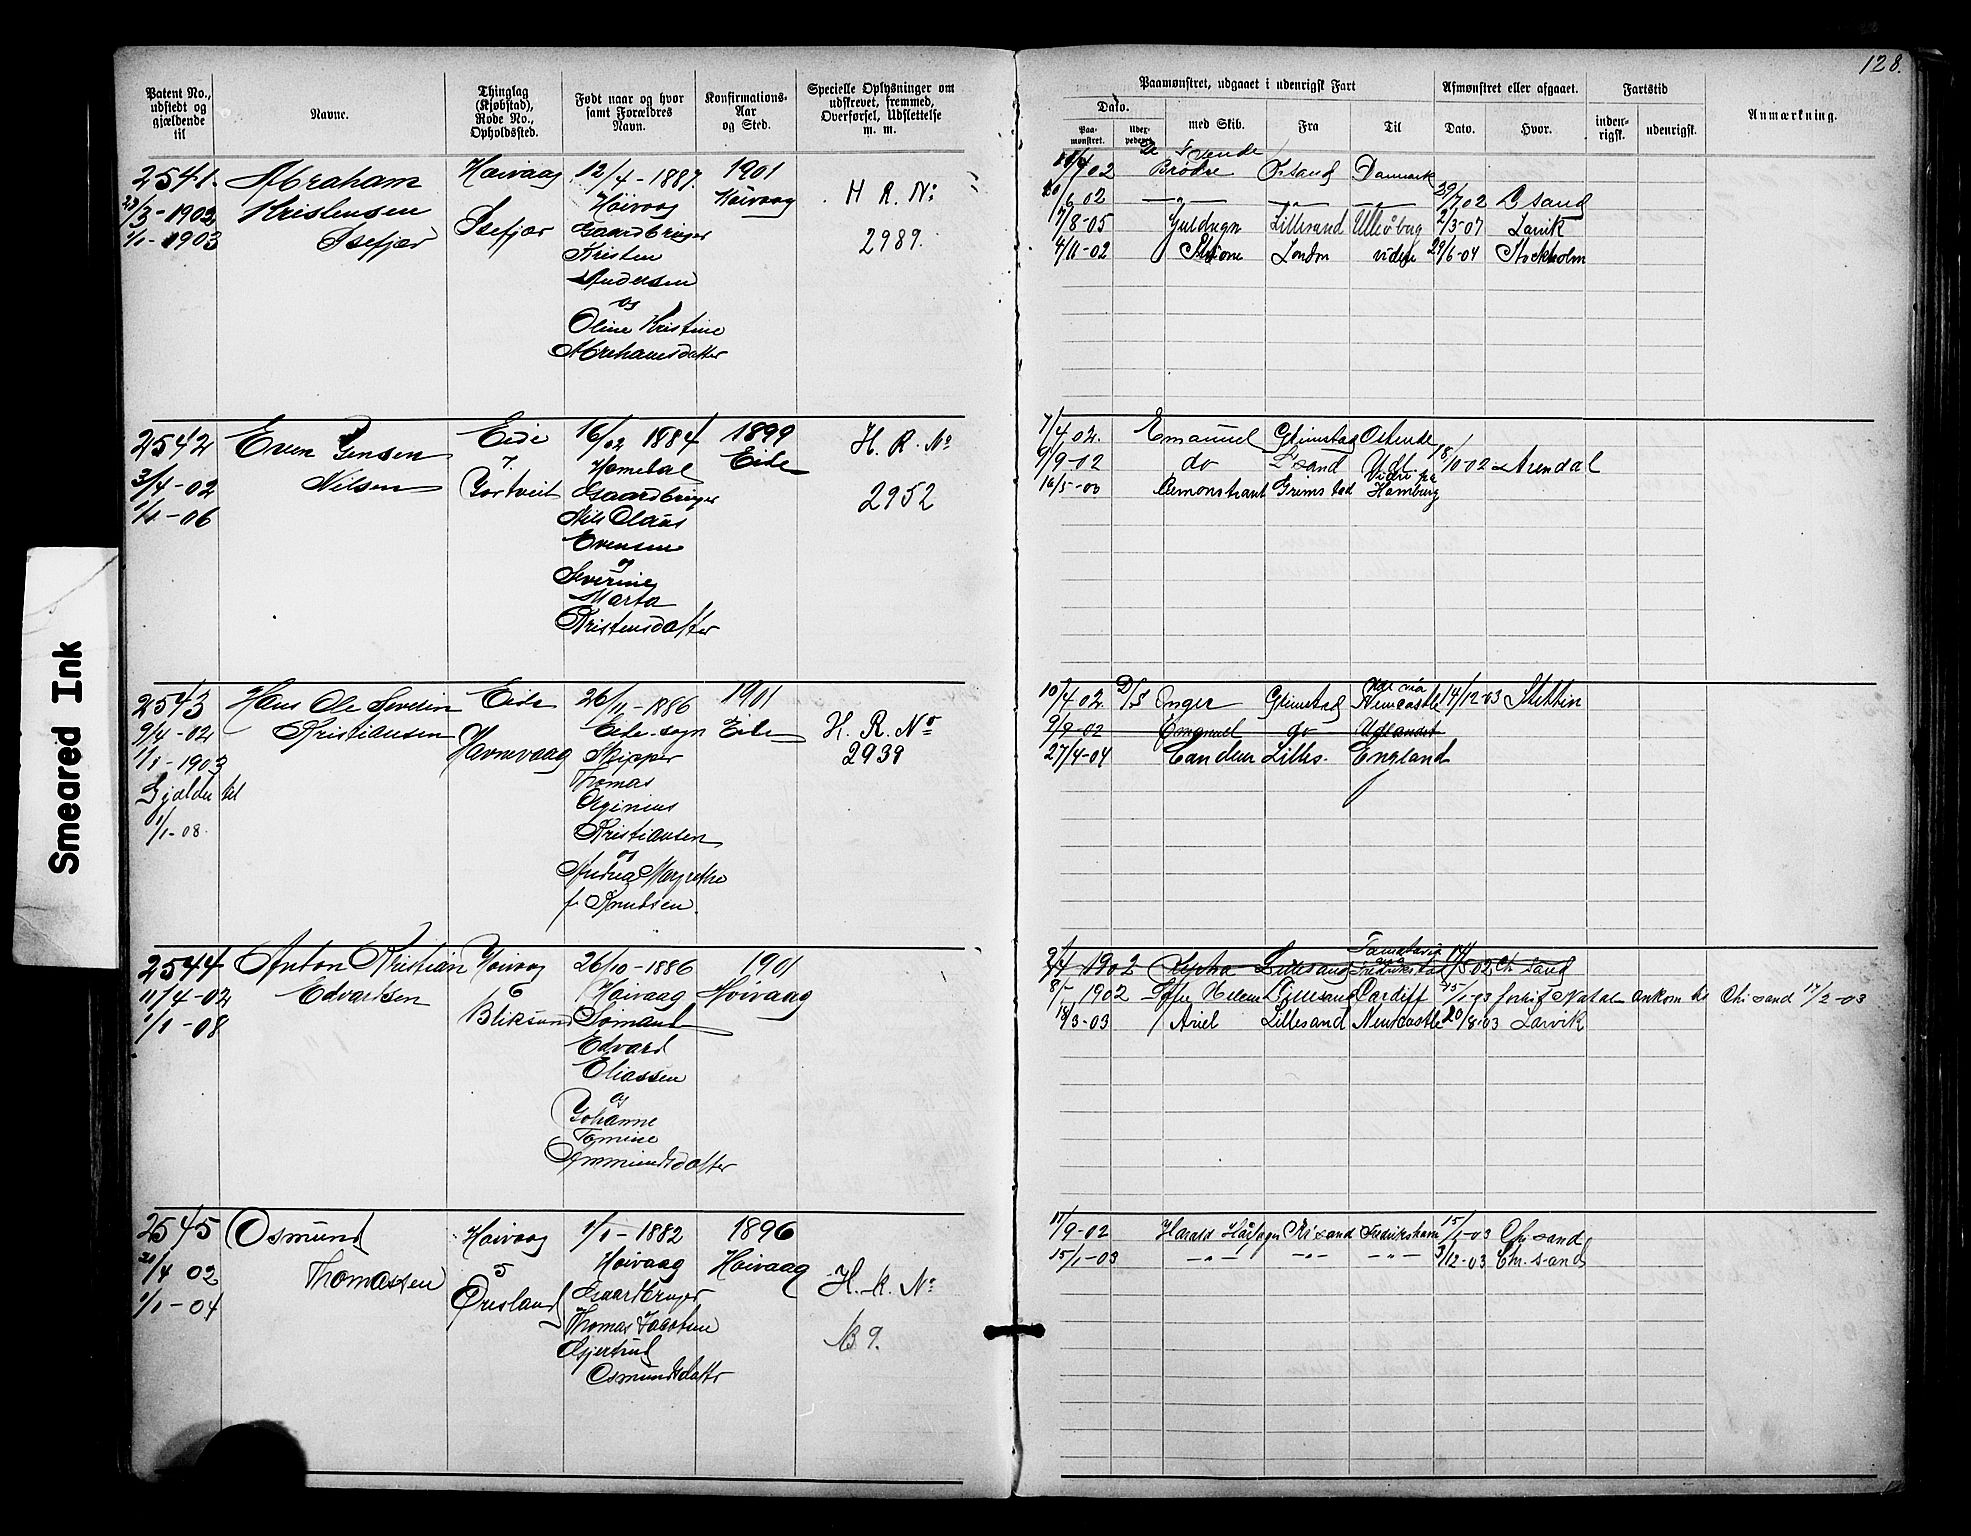 128.
Patent No., udstedt og gjældende til
Navne.
Thinglag (Kjøbstad), Rode No., Opholdssted.
Født naar og hvor samt Forældres Navn.
Konfirmations-Aar og Sted.
Specielle Oplysninger om udskrevet, fremmed, Overførsel, Udslettelse m. m.
Paamønstret, udgaaet i udenrigsk Fart
Dato.
Paa-mønstret.
med Skib.
Fra
Til
Afmønstret eller afgaaet.
Dato.
Hvor.
Fartstid
inden-rigsk.
udenrigsk.
Anmærkning.
2541.
23/3-1902
1/1-1903
Abraham
Kristensen
Isefjær
Høivaag
Isefjær
12/4-1887.
Høivaag
Gaardbruger
Kristen
Andersen
og
Oline Kristine
Abrehamsdatter
1901
Høivaag
H R. No
2989.
De Svende
Brødre Chrsand Danmark
20/6 02 29/7 02 C sand
17/8-05 Guldregn Lillesand 2/3-07 Larvik
4/11-02 London videre 29/6-04 Stockholm
2542
3/4-02
1/1-06
Even Jensen
Nilsen
Eide
7
Gortveit
16/02 1884
Homedal
Gaardbruger
Nils Olaus
Evensen
og
Severine
Marta
Kristensdatter
1899
Eide
H. R. No
2952
7/4 02. Emanuel Grimstad Ostende
9/9-02 do L'sand Udl. 18/10-02 Arendal
Grimstad Videre pa Hamburg
2543
9/4-02
1/1-1903
Gjælder til
1/1-08.
Hans Ole Severin
Kristiansen
Eide
Havnevaag
26/11-1886
Eide sogn
Skipper
Thomas
Kristiansen
og
Andrea Margrethe
f. Knudsen.
1901
Eide
H. R. No
2939
10/4 02 D/S Unger Grimstad Newcastle 14/12-03 Stettin
9/9-02 Emanuel do Udlandet
27/4-04 Lilles. England
2544
11/4-02
1/1-08
Anton Kristian
Edvardsen
Høivaag
6
Bliksund
26/10-1886
Høivaag
Sømand
Edvard
Eliassen
og
Johanne
Tomine
Ammundsdatter
1901
Høivaag
1902 Alpha Lillesand Fredrikstad Ch sand
1902 Helene Lillesand Cardiff forlist Natal ankom til Chr sand 17/2-03
18/3-03 Ariel Lillesand Newcastle 20/8-03 Larvik
2545
21/4 02
1/1-04
Osmund
Thomassen
Høivaag
5
Øresland
1/1-1882
Høivaag
Gaardbruger
Thomas Jacobsen
Gjertrud
Osmundsdatter
1896
Høivaag
H. R. No
139.
11/9-02 Harald Haarfager Chr sand Fredrikshavn 15/1-03 Chr sand
15/1-03 3/12-03 Chr. sand
Smeared Ink